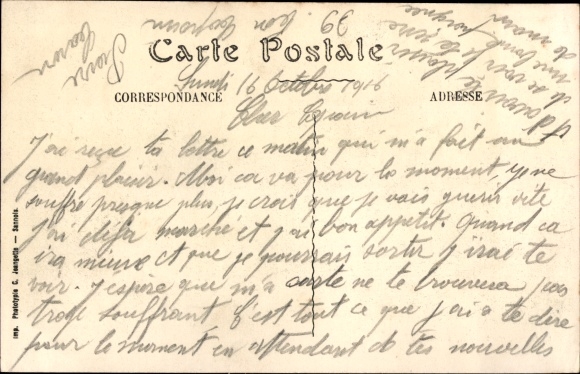 Carte Postale
Lundi 16 Octobre 1916
CORRESPONDANCE
ADRESSE
Cher Copain
J'ai reçue ta lettre ce matin qui m'a fait un
grand plaisir. Moi ca va pour le moment, je ne
souffre presque plus, je crois que je vais guerir vite
j'ai déjà marché et j'ai bon appetit. Quand ca
ira mieux et que je pourrais sortir j'irai te
voir. J'espère que m'a carte ne te trouvera pas
trop souffrant. C'est tout ce que j'ai a te dire
pour le moment en attendant de tes nouvelles
Imp. Phototypie C. Jeangette — Sannois
ton Copain
39